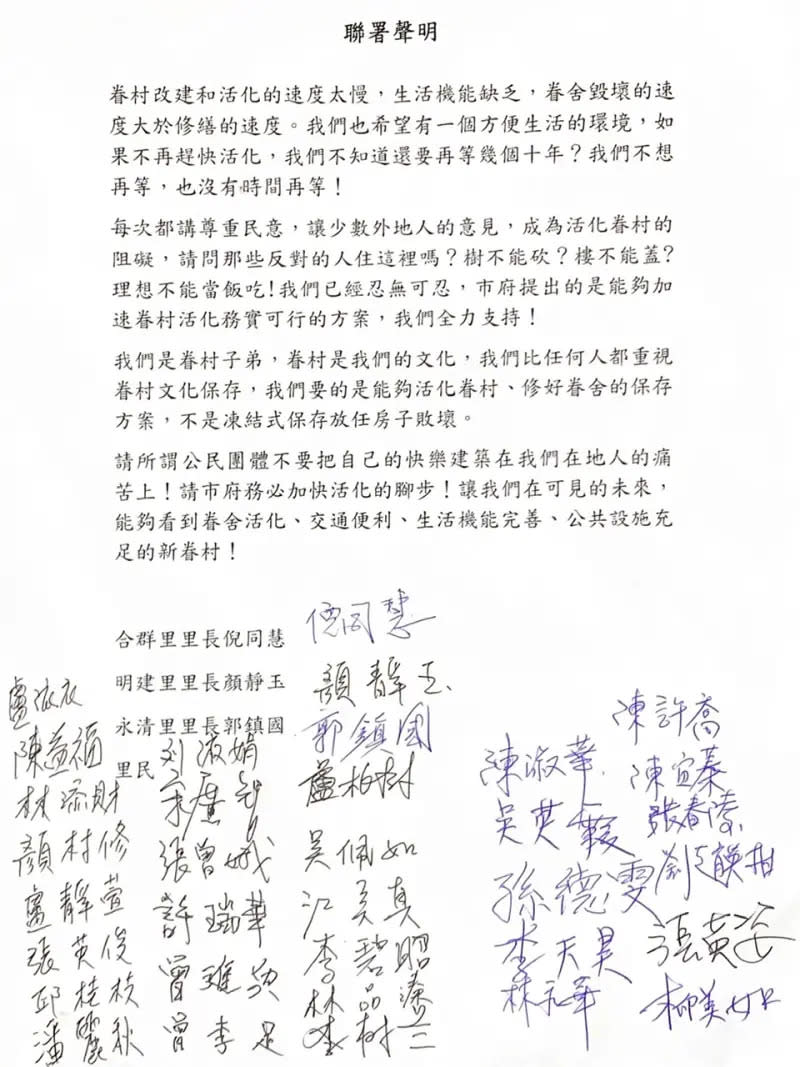 聯署聲明
眷村改建和活化的速度太慢，生活機能缺乏，眷舍毀壞的速
度大於修繕的速度。我們也希望有一個方便生活的環境，如
果不再趕快活化，我們不知道還要再等幾個十年？我們不想
再等，也沒有時間再等！
每次都講尊重民意，讓少數外地人的意見，成為活化眷村的
阻礙，請問那些反對的人住這裡嗎？樹不能砍？樓不能蓋？
理想不能當飯吃！我們已經忍無可忍，市府提出的是能夠加
速眷村活化務實可行的方案，我們全力支持！
我們是眷村子弟，眷村是我們的文化，我們比任何人都重視
眷村文化保存，我們要的是能夠活化眷村、修好眷舍的保存
方案，不是凍結式保存放任房子敗壞。
請所謂公民團體不要把自己的快樂建築在我們在地人的痛
苦上！請市府務必加快活化的腳步！讓我們在可見的未來，
能夠看到眷舍活化、交通便利、生活機能完善、公共設施充
足的新眷村！
合群里里長倪同慧 倪同慧
明建里里長顏靜玉 顏靜玉
永清里里長郭鎮國 郭鎮國
里民
盧淑衣
陳益福
林添財
顏村修
盧靜萱
張英俊
邱桂枝
潘麗秋
刘淑娟
許瑞華
曾李足
盧柏樹
吳佩如
李碧昭
林品溱
李樹三
陳淑華
吳英
孫德雯
李天昊
林元華
陳許喬
陳宜蓁
張春
張黃
柳美女